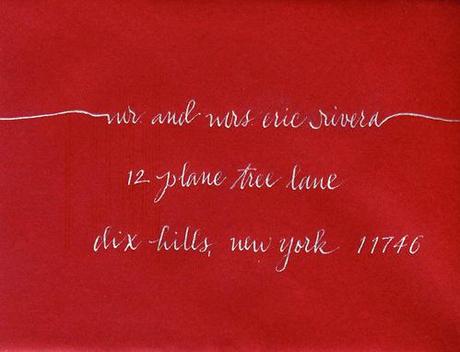 mr. and mrs. eric rivera
12 plane tree lane
dix hills, new york 11746